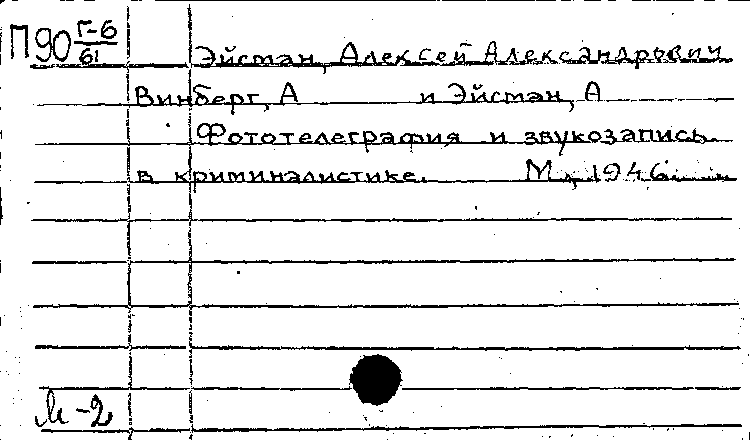 П90 Г-6/61
Эйсман, Алексей Александрович
Винберг, А и Эйсман, А
Фототелеграфия и звукозапись
в криминалистике. М., 1946
М-2